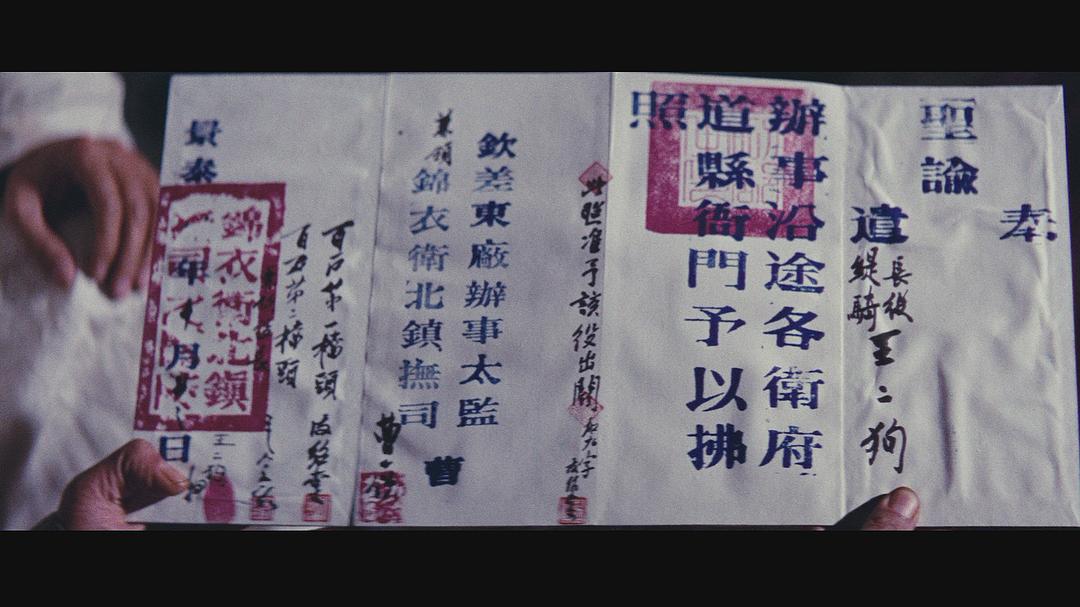 奉
聖諭
遣
長役
緹騎
王二狗
辦事沿途各衛府
道縣衙門予以拂
照
此照准予該役出關
欽差東廠辦事太監
曹
兼領
錦衣衛北鎮撫司
曹
百户第一檔頭
百户第二檔頭
景泰
年
月
日
錦衣衛北鎮
王二狗